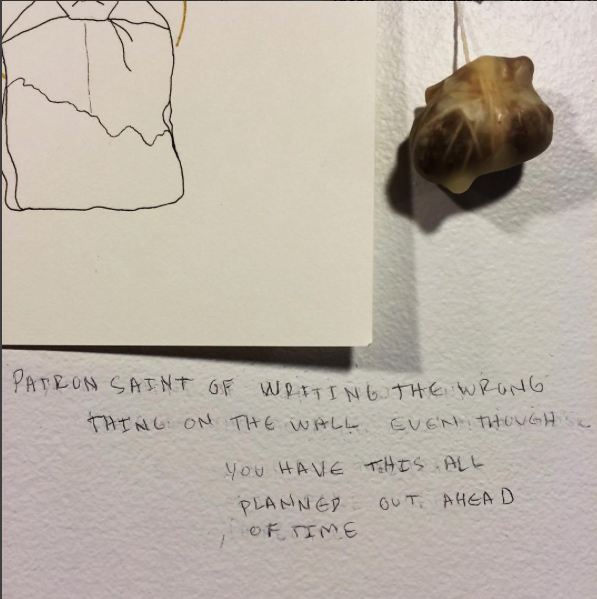 PATRON SAINT OF WRITING THE WRONG
THING ON THE WALL EVEN THOUGH
YOU HAVE THIS ALL
PLANNED OUT AHEAD
OF TIME